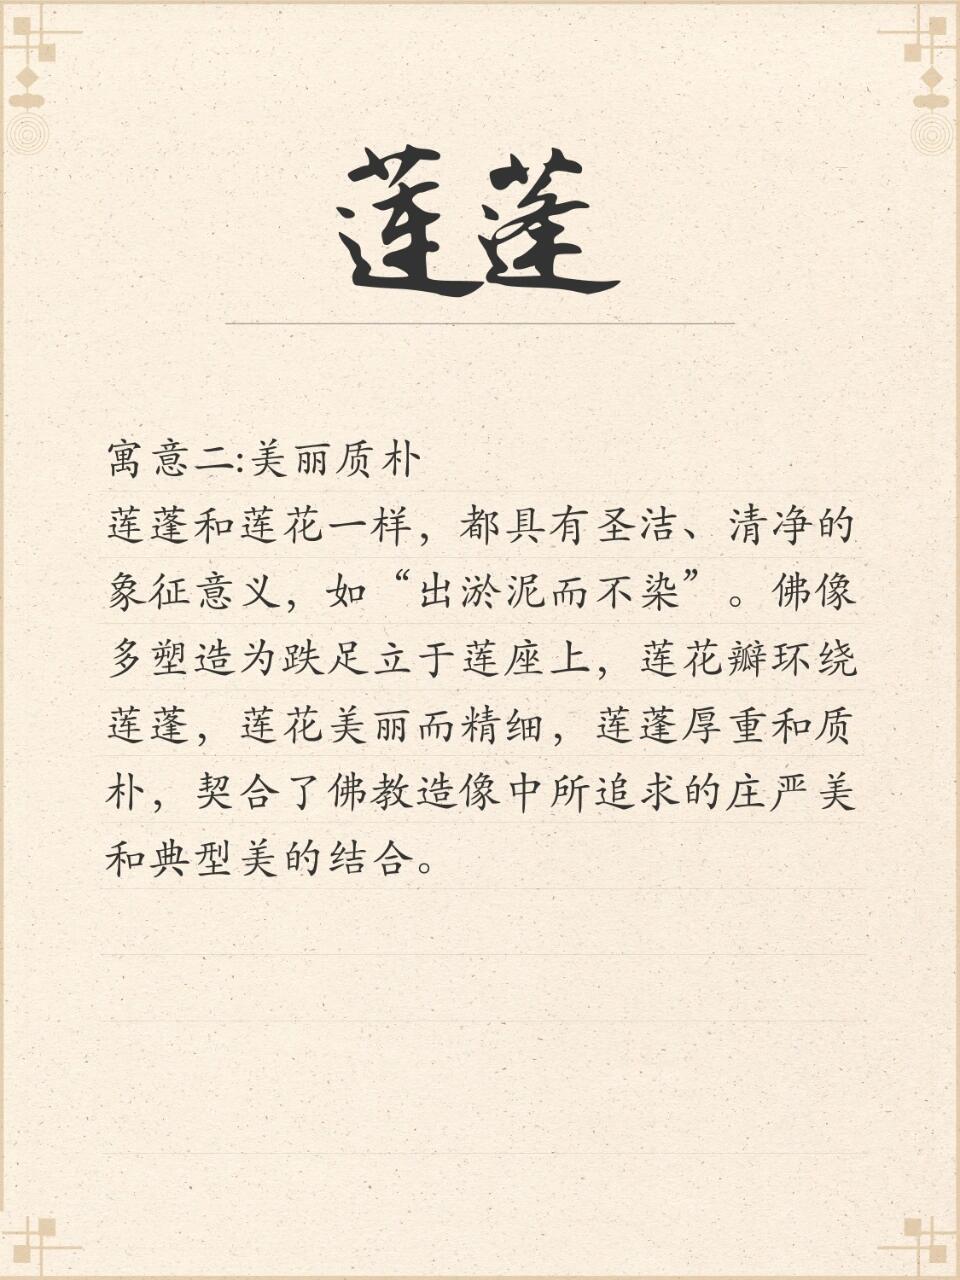 莲蓬
寓意二:美丽质朴
莲蓬和莲花一样，都具有圣洁、清净的
象征意义，如“出淤泥而不染”。佛像
多塑造为跌足立于莲座上，莲花瓣环绕
莲蓬，莲花美丽而精细，莲蓬厚重和质
朴，契合了佛教造像中所追求的庄严美
和典型美的结合。